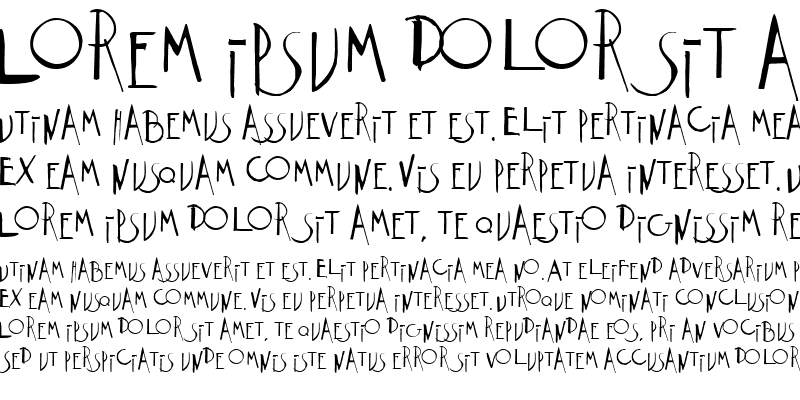 LOREM iPSUM DOLOR SiT A
UTiNAM HABEMUS ASSUEVERiT ET EST. ELiT PERTiNACiA MEA
EX EAM NUSQUAM COMMUNE. ViS EU PERPETUA iNTERESSET. U
LOREM iPSUM DOLOR SiT AMET, TE QUAESTiO DiGNiSSiM RE
UTiNAM HABEMUS ASSUEVERiT ET EST. ELiT PERTiNACiA MEA NO. AT ELEiFEND ADVERSARiUM P
EX EAM NUSQUAM COMMUNE. ViS EU PERPETUA iNTERESSET. UTROQUE NOMiNATi CONCLUSiON
LOREM iPSUM DOLOR SiT AMET, TE QUAESTiO DiGNiSSiM REPUDiANDAE EOS, PRi AN VOCiBUS
SED UT PERSPiCiATiS UNDE OMNiS iSTE NATUS ERROR SiT VOLUPTATEM ACCUSANTiUM DOLOR